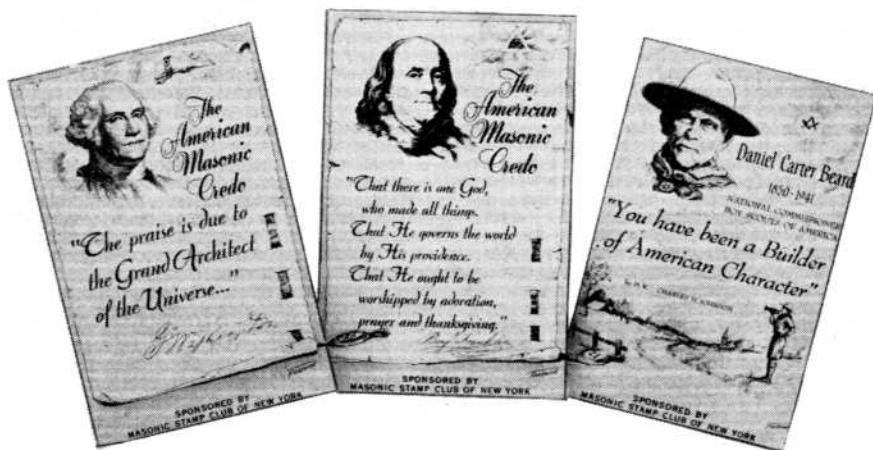 The
American
Masonic
Credo
"The praise is due to
the Grand Architect
of the Universe..."
G Washington
SPONSORED BY
MASONIC STAMP CLUB OF NEW YORK
The
American
Masonic
Credo
"That there is one God,
who made all things.
That He governs the world
by His providence.
That He ought to be
worshipped by adoration,
prayer and thanksgiving."
SPONSORED BY
MASONIC STAMP CLUB OF NEW YORK
Daniel Carter Beard
1850-1941
NATIONAL COMMISSIONER
BOY SCOUTS OF AMERICA
"You have been a Builder
of American Character"
CHARLES H. JOHNSON
SPONSORED BY
MASONIC STAMP CLUB OF NEW YORK